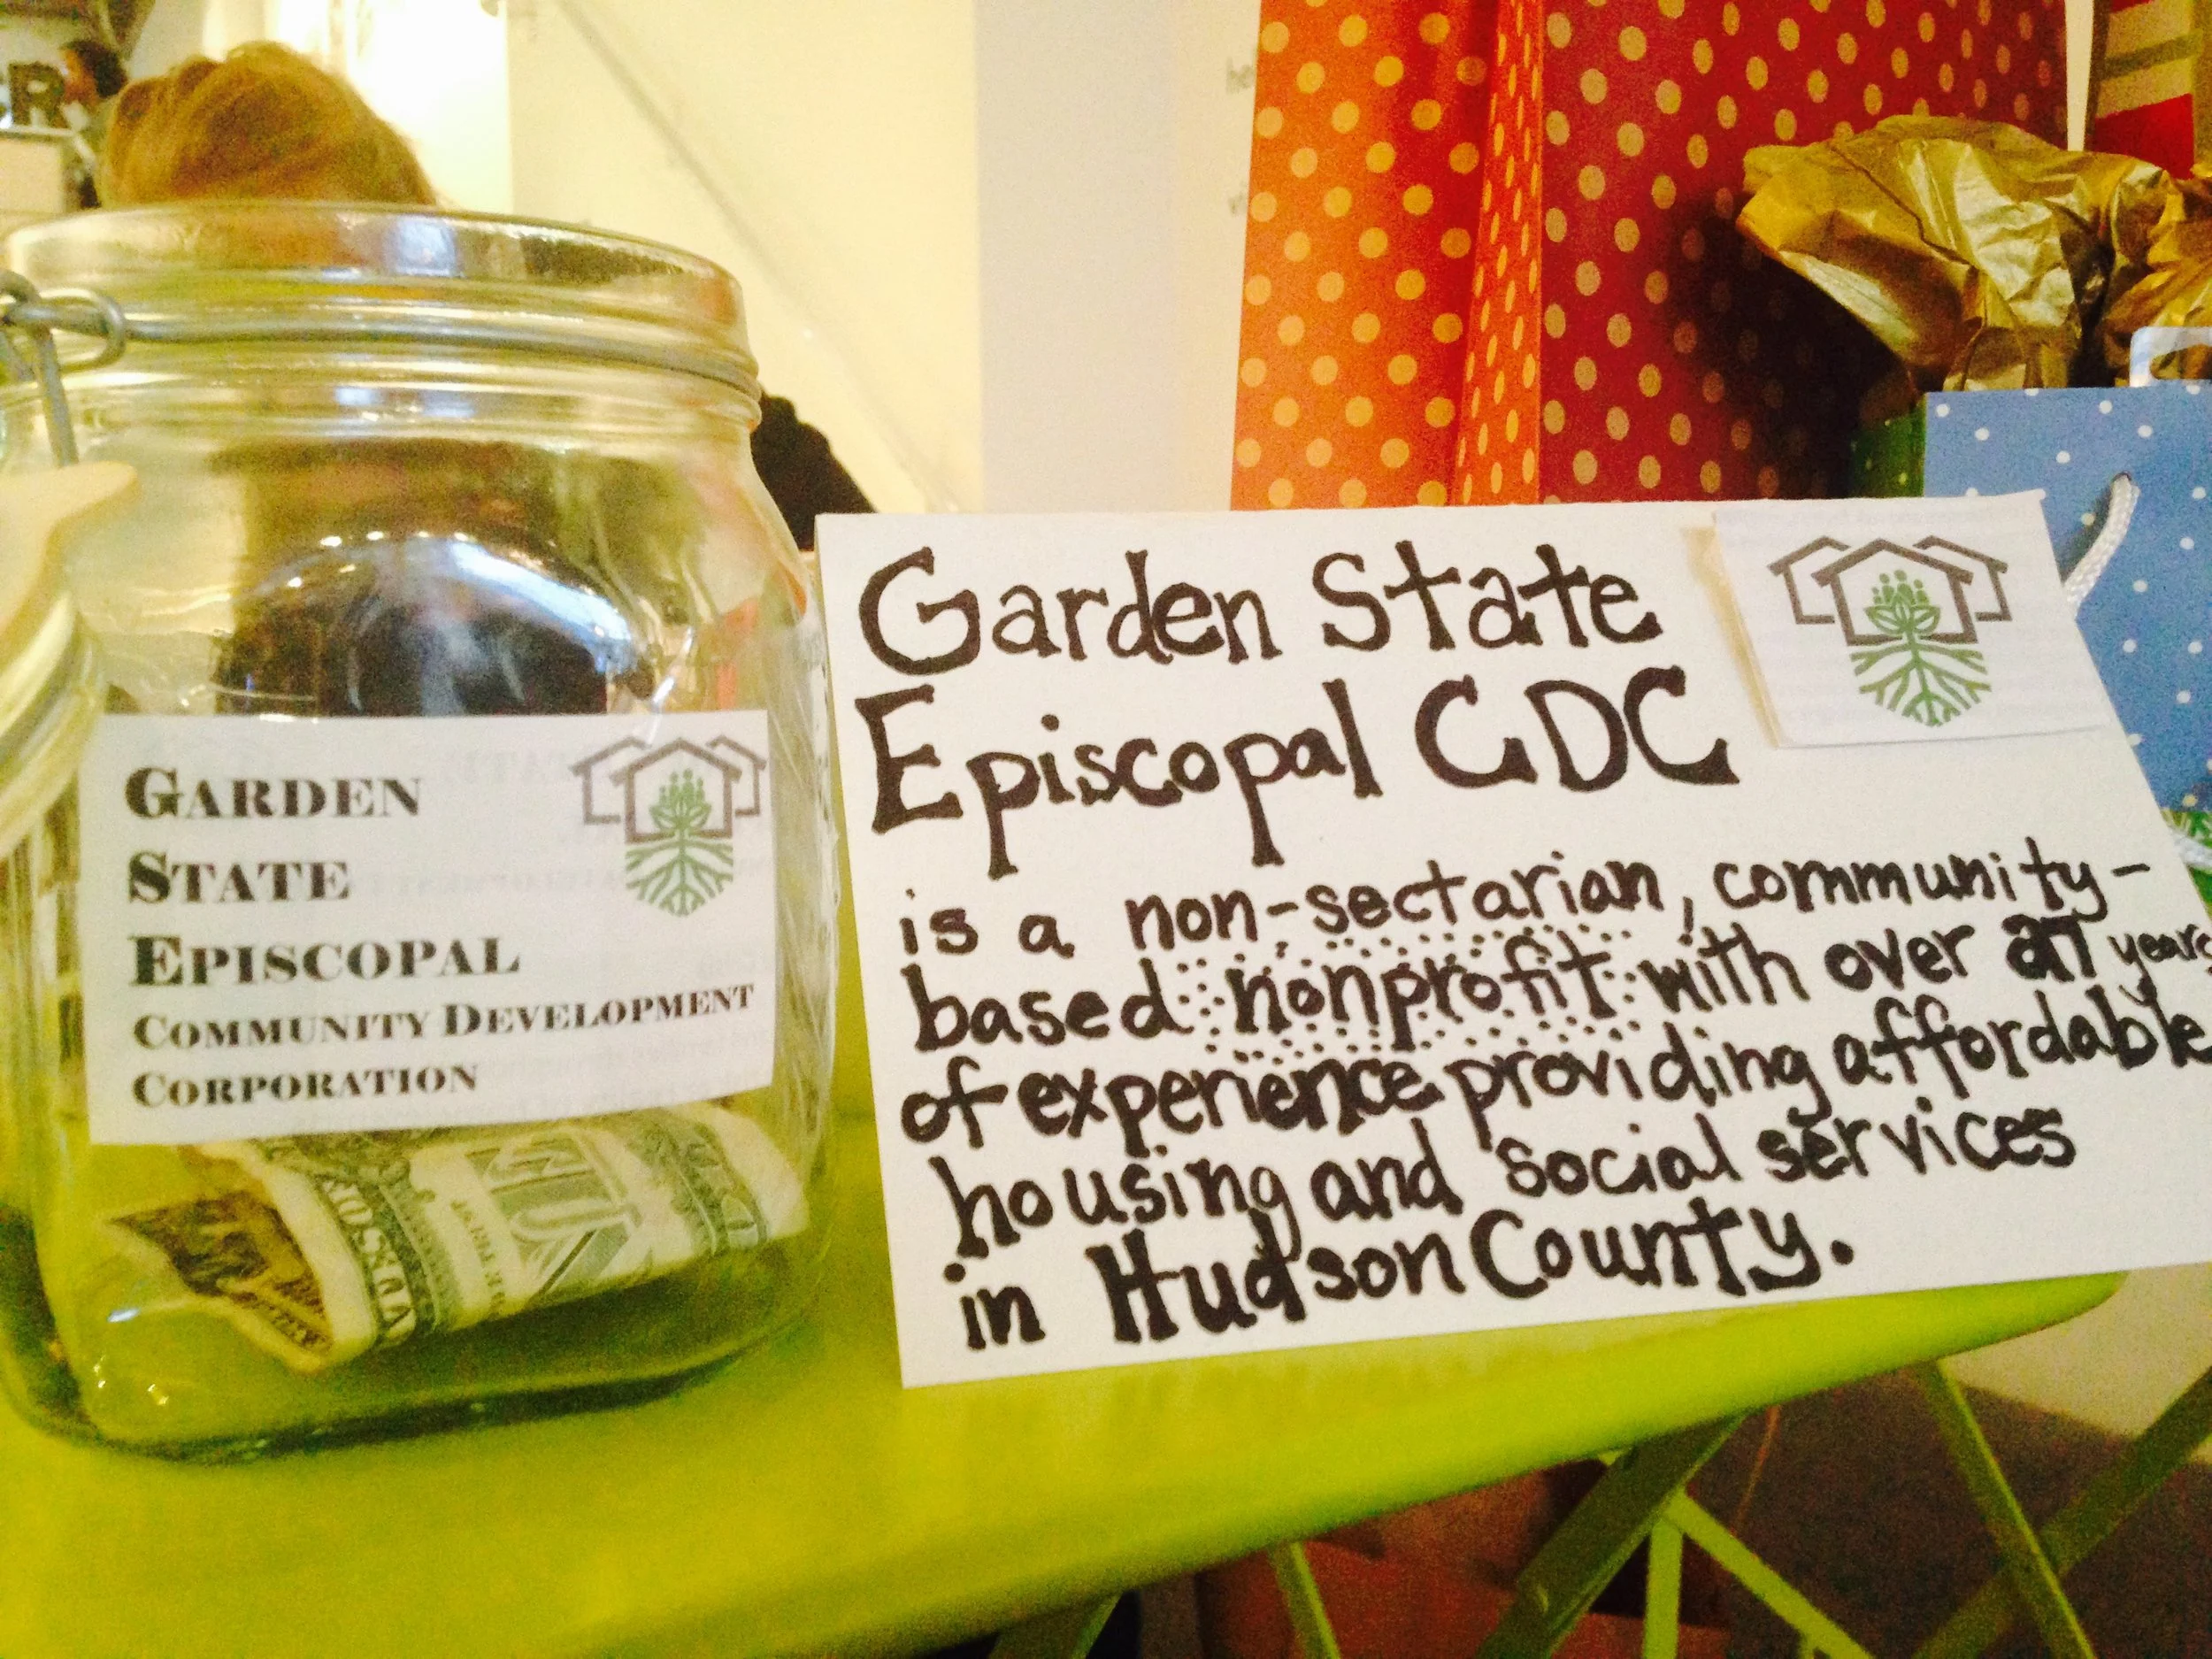 Garden State
Episcopal CDC
is a non-sectarian, community-
based nonprofit with over 27 years
of experience providing affordable
housing and social services
in Hudson County.
GARDEN
STATE
EPISCOPAL
COMMUNITY DEVELOPMENT
CORPORATION